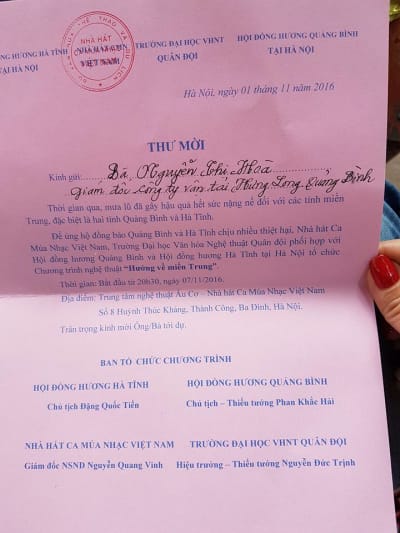 HỘI ĐỒNG HƯƠNG HÀ TĨNH
TẠI HÀ NỘI
NHÀ HÁT CMN
VIỆT NAM
TRƯỜNG ĐẠI HỌC VHNT
QUÂN ĐỘI
HỘI ĐỒNG HƯƠNG QUẢNG BÌNH
TẠI HÀ NỘI
NHÀ HÁT
Hà Nội, ngày 01 tháng 11 năm 2016
THƯ MỜI
Kính gửi: Bà, Nguyễn Thị Hoà
Giám đốc công ty vận tải Hưng Long Quảng Bình
Thời gian qua, mưa lũ đã gây hậu quả hết sức nặng nề đối với các tỉnh miền
Trung, đặc biệt là hai tỉnh Quảng Bình và Hà Tĩnh.
Để ủng hộ đồng bào Quảng Bình và Hà Tĩnh chịu nhiều thiệt hại, Nhà hát Ca
Múa Nhạc Việt Nam, Trường Đại học Văn hóa Nghệ thuật Quân đội phối hợp với
Hội đồng hương Quảng Bình và Hội đồng hương Hà Tĩnh tại Hà Nội tổ chức
Chương trình nghệ thuật "Hướng về miền Trung".
Thời gian: Bắt đầu từ 20h30, ngày 07/11/2016.
Địa điểm: Trung tâm nghệ thuật Âu Cơ – Nhà hát Ca Múa Nhạc Việt Nam
Số 8 Huỳnh Thúc Kháng, Thành Công, Ba Đình, Hà Nội.
Trân trọng kính mời Ông/Bà tới dự.
BAN TỔ CHỨC CHƯƠNG TRÌNH
HỘI ĐỒNG HƯƠNG HÀ TĨNH
Chủ tịch Đặng Quốc Tiến
HỘI ĐỒNG HƯƠNG QUẢNG BÌNH
Chủ tịch – Thiếu tướng Phan Khắc Hải
NHÀ HÁT CA MÚA NHẠC VIỆT NAM
Giám đốc NSND Nguyễn Quang Vinh
TRƯỜNG ĐẠI HỌC VHNT QUÂN ĐỘI
Hiệu trưởng – Thiếu tướng Nguyễn Đức Trịnh